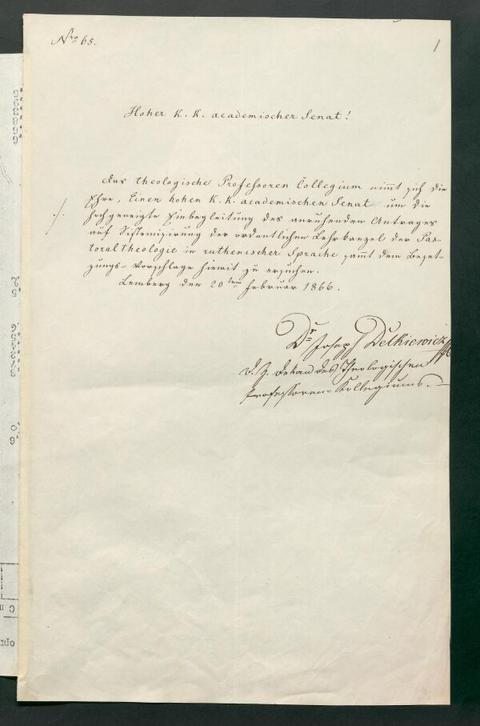 Nro 65.
1
Hoher k. k. academischer Senat!
Das theologische Professoren Collegium nimmt sich die
Ehre, Einen hohen k. k. academischen Senat um die
hochgeneigte Einbegleitung des anruhenden Antrages
auf Sistemizirung der ordentlichen Lehrkanzel der Pas-
toraltheologie in ruthenischer Sprache samt dem Beset-
zungs-Vorschlage hiemit zu ersuchen.
Lemberg den 20ten Februar 1866.
Dr Joseph Delkiewicz
d. Z. Dekan des Theologischen
Professoren-Kollegiums.